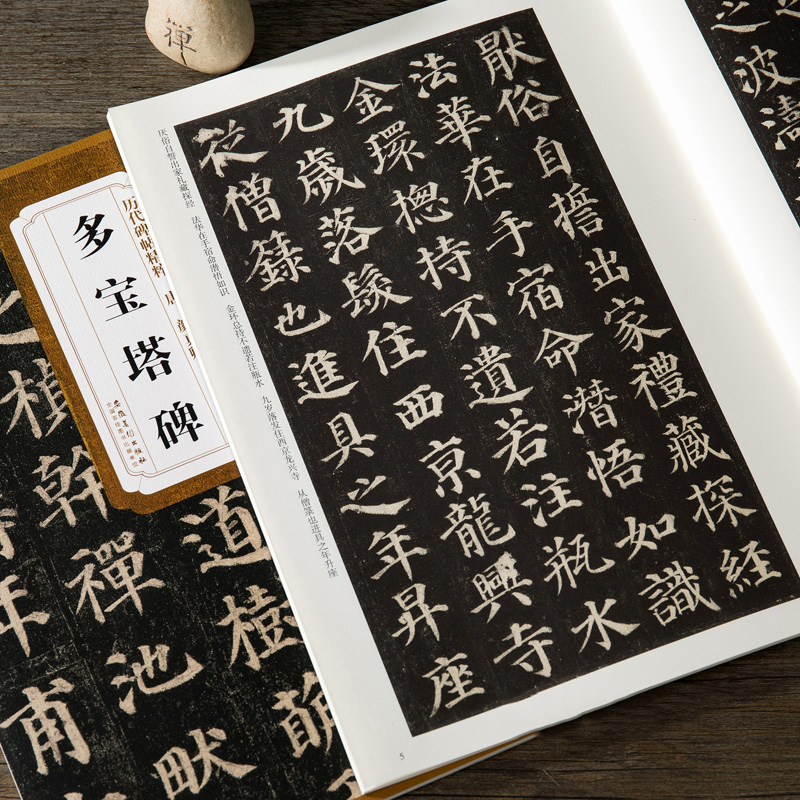 禪
之波濤
猒俗自誓出家禮藏探經
法華在手宿命潛悟如識
金環揔持不遺若注瓶水
九歲落髮住西京龍興寺
從僧籙也進具之年昇座
厌俗自誓出家礼藏探经 法华在手宿命潜悟如识 金环总持不遗若注瓶水 九岁落发住西京龙兴寺 从僧箓也进具之年升座
5
历代碑帖精粹
多宝塔碑
安徽美术出版社
全国百佳图书出版单位
道樹萌
楨幹禪池畎
年甫